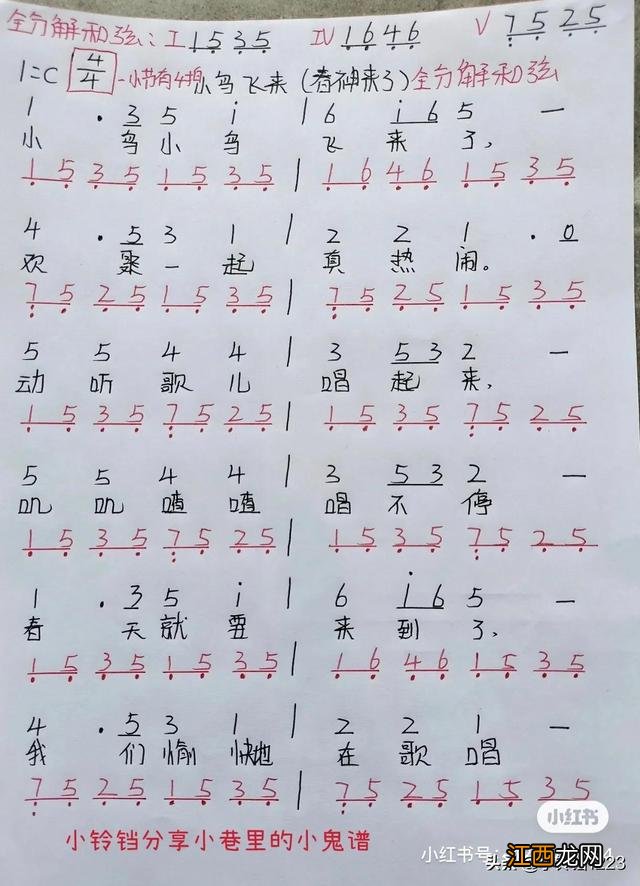 全分解和弦：I 1 5 3 5 IV 1 6 4 6 V 7 5 2 5
1=C 4/4 一小节有4拍 小鸟飞来（春神来了）全分解和弦
1 · 3 5 i | 6 i 6 5 —
小 鸟 小 鸟 飞 来 了，
1 5 3 5 1 5 3 5 | 1 6 4 6 1 5 3 5
4 · 5 3 1 | 2 2 1 · 0
欢 聚 一 起 真 热 闹。
7 5 2 5 1 5 3 5 | 7 5 2 5 1 5 3 5
5 5 4 4 | 3 5 3 2 —
动 听 歌 儿 唱 起 来，
1 5 3 5 7 5 2 5 | 1 5 3 5 7 5 2 5
5 5 4 4 | 3 5 3 2 —
叽 叽 喳 喳 唱 不 停
1 5 3 5 7 5 2 5 | 1 5 3 5 7 5 2 5
1 · 3 5 i | 6 i 6 5 —
春 天 就 要 来 到 了，
1 5 3 5 1 5 3 5 | 1 6 4 6 1 5 3 5
4 · 5 3 1 | 2 2 1 —
我 们 愉 快地 在 歌 唱
7 5 2 5 1 5 3 5 | 7 5 2 5 1 5 3 5
小红书
小铃铛分享小巷里的小鬼谱
小红书号：
江西龙网
头条